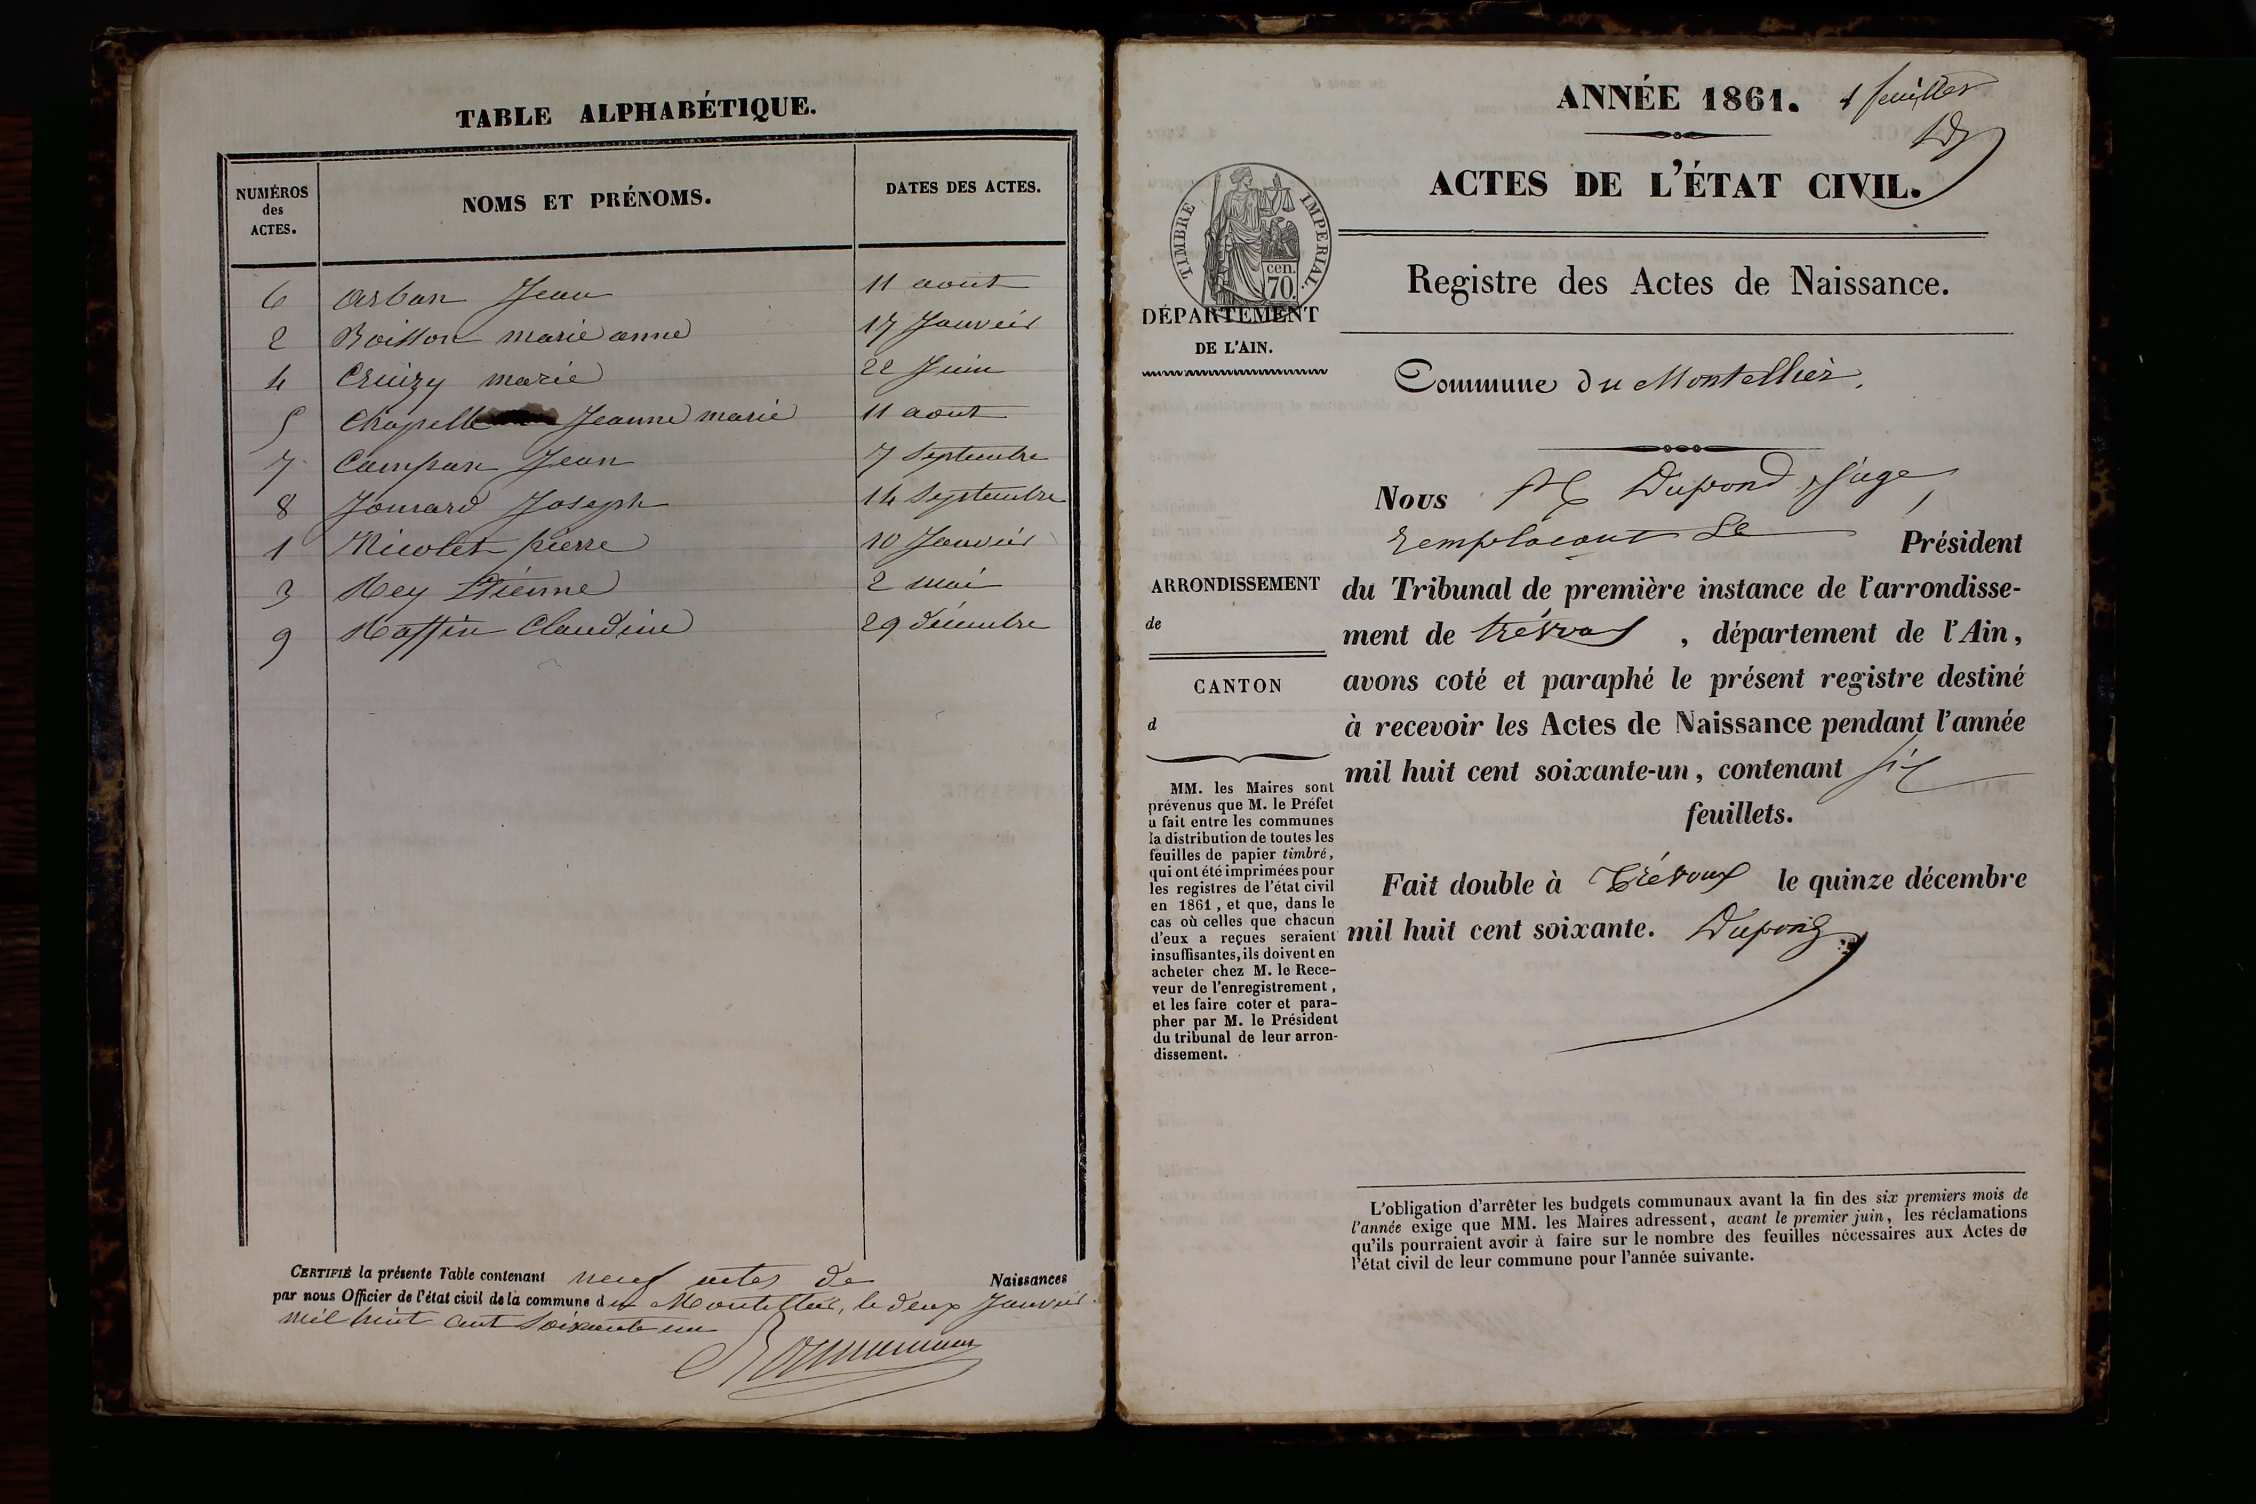 TABLE ALPHABÉTIQUE.
NUMÉROS des ACTES. NOMS ET PRÉNOMS. DATES DES ACTES.
6 Arban Jean 11 aout
2 Boisson marie anne 17 Janvier
4 Cruizy marie 22 Juin
5 Chapelle Jeanne marie 11 aout
7 Campan Jean 7 Septembre
8 Jomard Joseph 14 Septembre
1 Nicolet pierre 10 Janvier
3 Rey Etienne 2 mai
9 Raffin Claudine 29 décembre
CERTIFIÉ la présente Table contenant neuf actes de Naissances
par nous Officier de l'état civil de la commune du Montellier, le deux Janvier
mil huit cent Soixante un
ANNÉE 1861.
1 feuillet
ACTES DE L'ÉTAT CIVIL.
TIMBRE IMPERIAL.
cen.
70.
Registre des Actes de Naissance.
DÉPARTEMENT
DE L'AIN.
Commune du Montellier.
Nous Dupond Juge,
remplacant le Président
du Tribunal de première instance de l'arrondisse-
ment de trévoux, département de l'Ain,
avons coté et paraphé le présent registre destiné
à recevoir les Actes de Naissance pendant l'année
mil huit cent soixante-un, contenant six
feuillets.
Fait double à Trévoux le quinze décembre
mil huit cent soixante. Dupond
ARRONDISSEMENT
de
CANTON
d
MM. les Maires sont
prévenus que M. le Préfet
a fait entre les communes
la distribution de toutes les
feuilles de papier timbré,
qui ont été imprimées pour
les registres de l'état civil
en 1861, et que, dans le
cas où celles que chacun
d'eux a reçues seraient
insuffisantes, ils doivent en
acheter chez M. le Rece-
veur de l'enregistrement,
et les faire coter et para-
pher par M. le Président
du tribunal de leur arron-
dissement.
L'obligation d'arrêter les budgets communaux avant la fin des six premiers mois de
l'année exige que MM. les Maires adressent, avant le premier juin, les réclamations
qu'ils pourraient avoir à faire sur le nombre des feuilles nécessaires aux Actes de
l'état civil de leur commune pour l'année suivante.